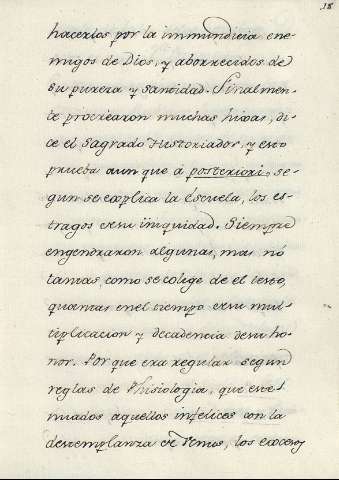 18
hacerlos por la immundicia ene-
migos de Dios, y aborrecidos de
su pureza y santidad. Finalmen-
te procrearon muchas hixas, di-
ce el Sagrado Historiador, y esto
prueba aun que á posteriori, se-
gun se explica la Escuela, los es-
tragos de su iniquidad. Siempre
engendraron algunas, mas nó
tantas, como se colige de el texto,
quantas en el tiempo de su mul-
tiplicacion y decadencia de su ho-
nor. Porque era regular segun
reglas de Phisiologia, que exte-
nuados aquellos infelices con la
destemplanza de Venus, los excesos